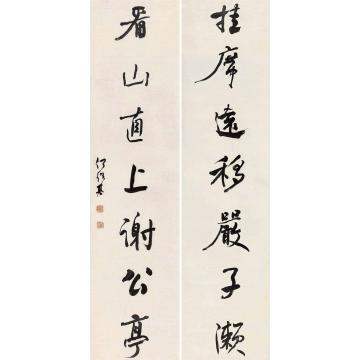 挂席远移嚴子濑
看山直上谢公亭
何紹基